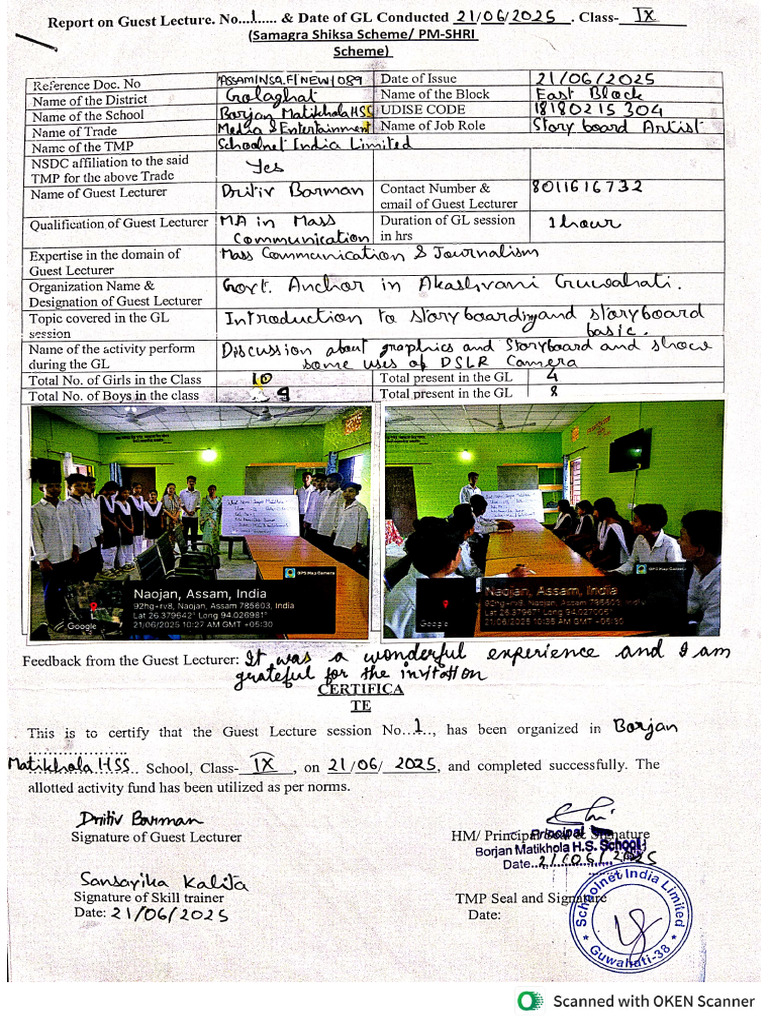 Report on Guest Lecture. No...1..... & Date of GL Conducted 21/06/2025. Class- IX
(Samagra Shiksa Scheme/ PM-SHRI
Scheme)
Reference Doc. No ASSAM/NSQF/NEW/089 Date of Issue 21/06/2025
Name of the District Golaghat Name of the Block East Block
Name of the School Borjan Matikhola HSS UDISE CODE 18180215304
Name of Trade Media & Entertainment Name of Job Role Story board Artist
Name of the TMP Schoolnet India Limited
NSDC affiliation to the said
TMP for the above Trade Yes
Name of Guest Lecturer Dritiv Barman Contact Number &
email of Guest Lecturer 8011616732
Qualification of Guest Lecturer MA in Mass
Communication Duration of GL session
in hrs 1 hour
Expertise in the domain of
Guest Lecturer Mass Communication & Journalism
Organization Name &
Designation of Guest Lecturer Govt. Anchor in Akashvani Guwahati.
Topic covered in the GL
session Introduction to storyboarding and storyboard
basic.
Name of the activity perform
during the GL Discussion about graphics and Storyboard and show
some uses of DSLR Camera
Total No. of Girls in the Class 10 Total present in the GL 4
Total No. of Boys in the class 9 Total present in the GL 8
GPS Map Camera
Naojan, Assam, India
92hg+rv8, Naojan, Assam 785603, India
Lat 26.379642° Long 94.026961°
21/06/2025 10:27 AM GMT +05:30
Google
GPS Map Camera
Naojan, Assam, India
92hg+rv8, Naojan, Assam 785603, India
21/06/2025 10:35 AM GMT +05:30
Google
Feedback from the Guest Lecturer: It was a wonderful experience and I am
grateful for the invitation
CERTIFICA
TE
This is to certify that the Guest Lecture session No...1..., has been organized in Borjan
Matikhola HSS School, Class- IX, on 21/06/ 2025, and completed successfully. The
allotted activity fund has been utilized as per norms.
Dritiv Barman
Signature of Guest Lecturer
HM/ Principal Seal & Signature
Principal
Borjan Matikhola H.S. School
Date
Sansarika Kalita
Signature of Skill trainer
Date: 21/06/2025
TMP Seal and Signature
Date:
Schoolnet India Limited
Guwahati-38
Scanned with OKEN Scanner